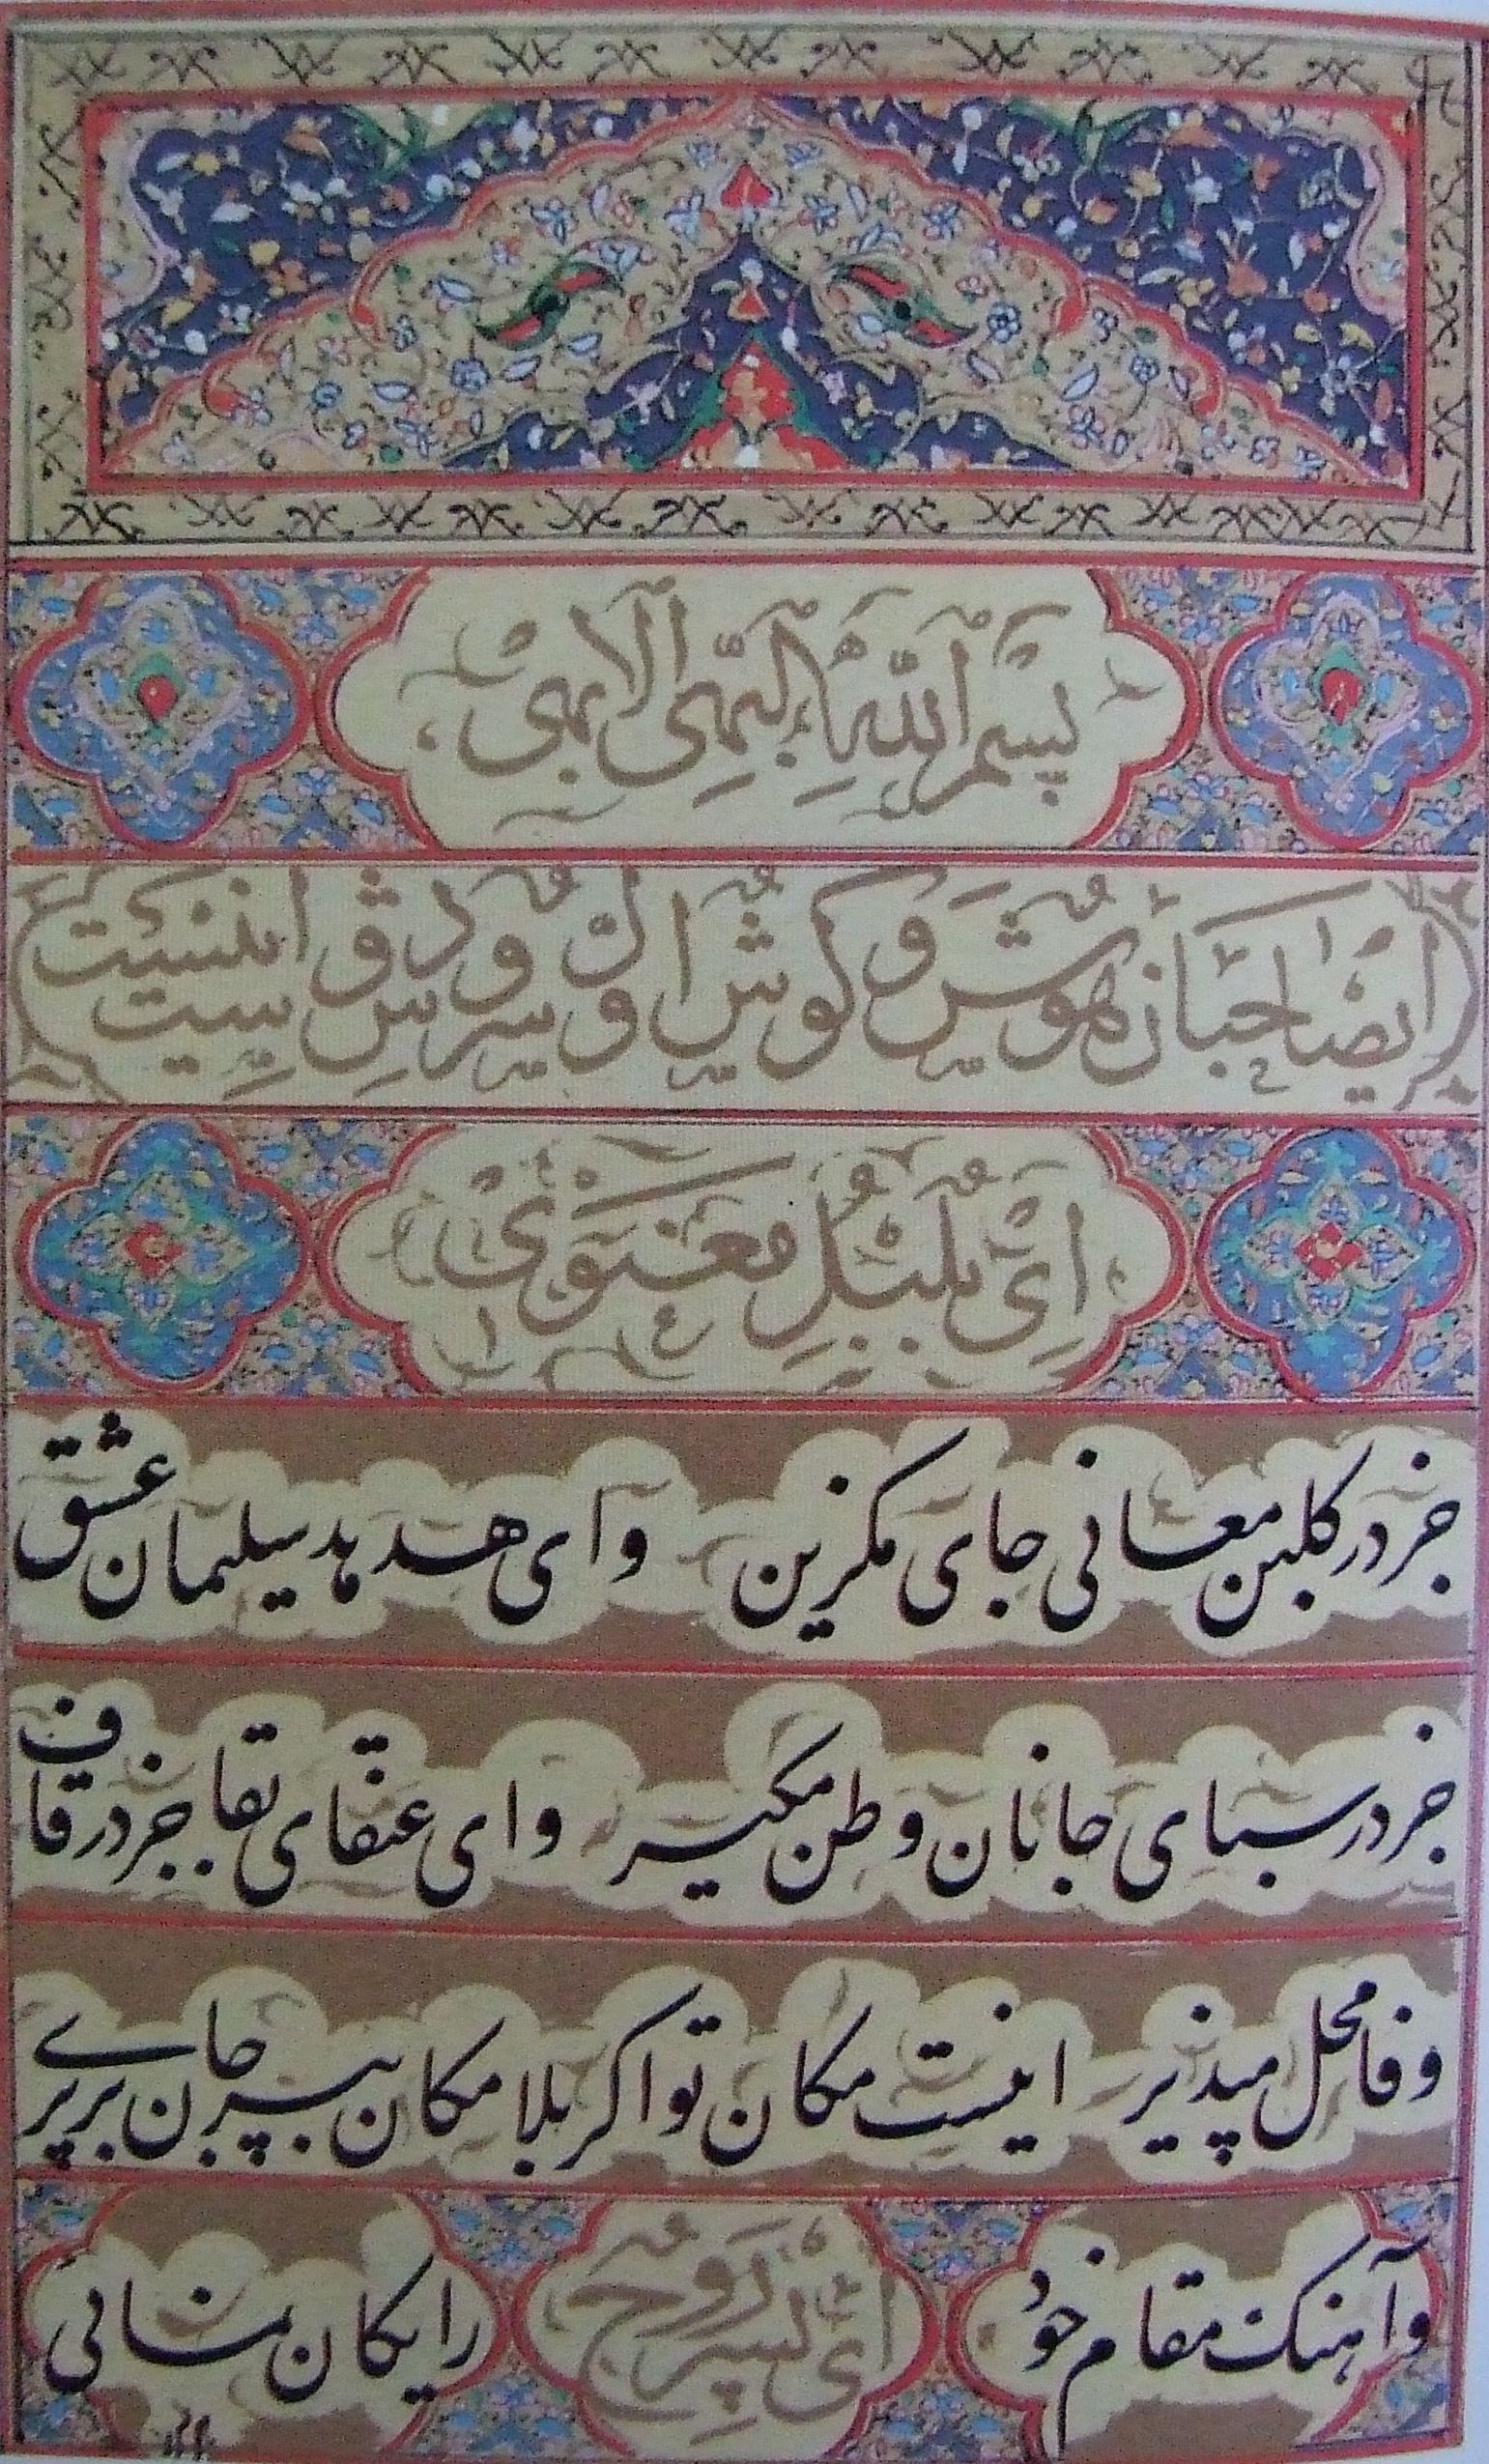 بسم اللّه البهیّ الأبهی
ای صاحبان هوش و گوش اوّل سروش دوست اینست
ای بلبل معنوی
جز در گلبن معانی جای مگزین و ای هدهد سلیمان عشق
جز در سبای جانان وطن مگیر و ای عنقای بقا جز در قاف
وفا محل مپذیر اینست مکان تو اگر بلامکان بپر جان برپری
و آهنگ مقام خود رایگان نمائی
ای پسر روح